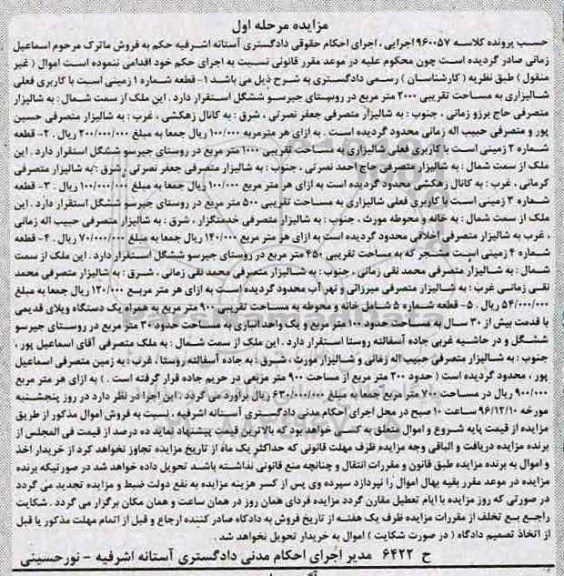 مزایده مرحله اول
حسب پرونده کلاسه ۹۶۰۰۵۷ اجرایی ، اجرای احکام حقوقی دادگستری آستانه اشرفیه حکم به فروش ماترک مرحوم اسماعیل
زمانی صادر گردیده است چون محکوم علیه در موعد مقرر قانونی نسبت به اجرای حکم خود اقدامی ننموده است اموال ( غیر
منقول ) طبق نظریه ( کارشناسان ) رسمی دادگستری به شرح ذیل می باشد ۱- قطعه شماره ۱ زمینی است با کاربری فعلی
شالیزاری به مساحت تقریبی ۲۰۰۰ متر مربع در روستای جیرسو ششگل استقرار دارد . این ملک از سمت شمال : به شالیزار
متصرفی حاج برزو زمانی ، جنوب : به شالیزار متصرفی جعفر نصرتی ، شرق : به کانال زهکشی ، غرب : به شالیزار متصرفی حسین
پور و متصرفی حبیب اله زمانی محدود گردیده است . به ازای هر مترمربه ۱۰۰/۰۰۰ ریال جمعا به مبلغ ۲۰۰/۰۰۰/۰۰۰ ریال . ۲- قطعه
شماره ۲ زمینی است با کاربری فعلی شالیزاری به مساحت تقریبی ۱۰۰۰ متر مربع در روستای جیرسو ششگل استقرار دارد . این
ملک از سمت شمال : به شالیزار متصرفی حاج احمد نصرتی ، جنوب : به شالیزار متصرفی جعفر نصرتی ، شرق : به شالیزار متصرفی
کرمانی ، غرب : به کانال زهکشی محدود گردیده است به ازای هر متر مربع ۱۰۰/۰۰۰ ریال جمعا به مبلغ ۱۰۰/۰۰۰/۰۰۰ ریال . ۳- قطعه
شماره ۳ زمینی است با کاربری فعلی شالیزاری به مساحت تقریبی ۵۰۰ متر مربع در روستای جیرسو ششگل استقرار دارد . این
ملک از سمت شمال : به خانه و محوطه مورث ، جنوب : به شالیزار متصرفی خدمتگزار ، شرق : به شالیزار متصرفی حبیب اله زمانی
، غرب به شالیزار متصرفی اخلاقی محدود گردیده است به ازای هر متر مربع ۱۴۰/۰۰۰ ریال جمعا به مبلغ ۷۰/۰۰۰/۰۰۰ ریال . ۴- قطعه
شماره ۴ زمینی است مشجر که به مساحت تقریبی ۴۵۰ متر مربع در روستای جیرسو ششگل استقرار دارد . این ملک از سمت
شمال : به شالیزار متصرفی محمد تقی زمانی ، جنوب : به شالیزار متصرفی محمد نقی زمانی ، شرق : به شالیزار متصرفی محمد
نقی زمانی غرب : به شالیزار متصرفی میرزائی و نهر آب محدود گردیده است به ازای هر متر مربع ۱۲۰/۰۰۰ ریال جمعا به مبلغ
۵۴/۰۰۰/۰۰۰ ریال . ۵- قطعه شماره ۵ شامل خانه و محوطه به مساحت تقریبی ۹۰۰ متر مربع به همراه یک دستگاه ویلای قدیمی
با قدمت بیش از ۳۰ سال به مساحت حدود ۱۰۰ متر مربع و یک واحد انباری به مساحت حدود ۳۰ متر مربع در روستای جیرسو
ششگل و در حاشیه غربی جاده آسفالته روستا استقرار دارد . این ملک از سمت شمال : به ملک متصرفی آقای اسماعیل پور ،
جنوب : به شالیزار متصرفی حبیب اله زمانی و شالیزار مورث ، شرق : به جاده آسفالته روستا ، غرب : به زمین متصرفی اسماعیل
پور ، محدود گردیده است ( حدود ۲۰۰ متر مربع از مساحت ۹۰۰ متر مربعی در حریم جاده قرار گرفته است . ) به ازای هر متر مربع
۹۰۰/۰۰۰ ریال در مساحت ۷۰۰ متر مربع جمعا به مبلغ ۶۳۰/۰۰۰/۰۰۰ ریال برآورد می گردد . این اجرا در نظر دارد در روز پنجشنبه
مورخه ۹۶/۱۲/۱۰ ساعت ۱۰ صبح در محل اجرای احکام مدنی دادگستری آستانه اشرفیه ، نسبت به فروش اموال مذکور از طریق
مزایده از قیمت پایه شروع و اموال متعلق به کسی خواهد بود که بالاترین قیمت پیشنهاد نماید ده درصد از قیمت فی المجلس از
برنده مزایده دریافت و الباقی وجه مزایده ظرف مهلت قانونی که حداکثر یک ماه از تاریخ مزایده تجاوز نخواهد کرد از خریدار اخذ
و اموال به برنده مزایده طبق قانون و مقررات انتقال و چنانچه منع قانونی نداشته باشد تحویل داده خواهد شد در صورتیکه برنده
مزایده در موعد مقرر بقیه بهای اموال را نپردازد سپرده وی پس از کسر هزینه مزایده به نفع دولت ضبط و مزایده تجدید می گردد
در صورتی که روز مزایده با ایام تعطیل مقارن گردد مزایده فردای همان روز در همان ساعت و همان مکان برگزار می گردد . شکایت
راجع به تخلف از مقررات مزایده ظرف یک هفته از تاریخ فروش به دادگاه صادر کننده ارجاع و قبل از اتمام مهلت مذکور یا قبل
از اتخاذ تصمیم دادگاه ( در صورت شکایت ) اموال به خریدار تحویل نخواهد شد .
ح ۶۴۲۲ مدیر اجرای احکام مدنی دادگستری آستانه اشرفیه - نورحسینی